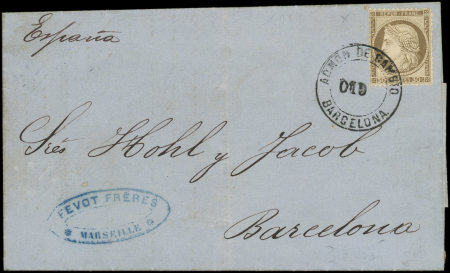 España
REPUB. FRANC.
ADMON DE CAMBIO
BARCELONA
Sres Hohl y Jacob
FEVOT FRÈRES
MARSEILLE
Barcelona